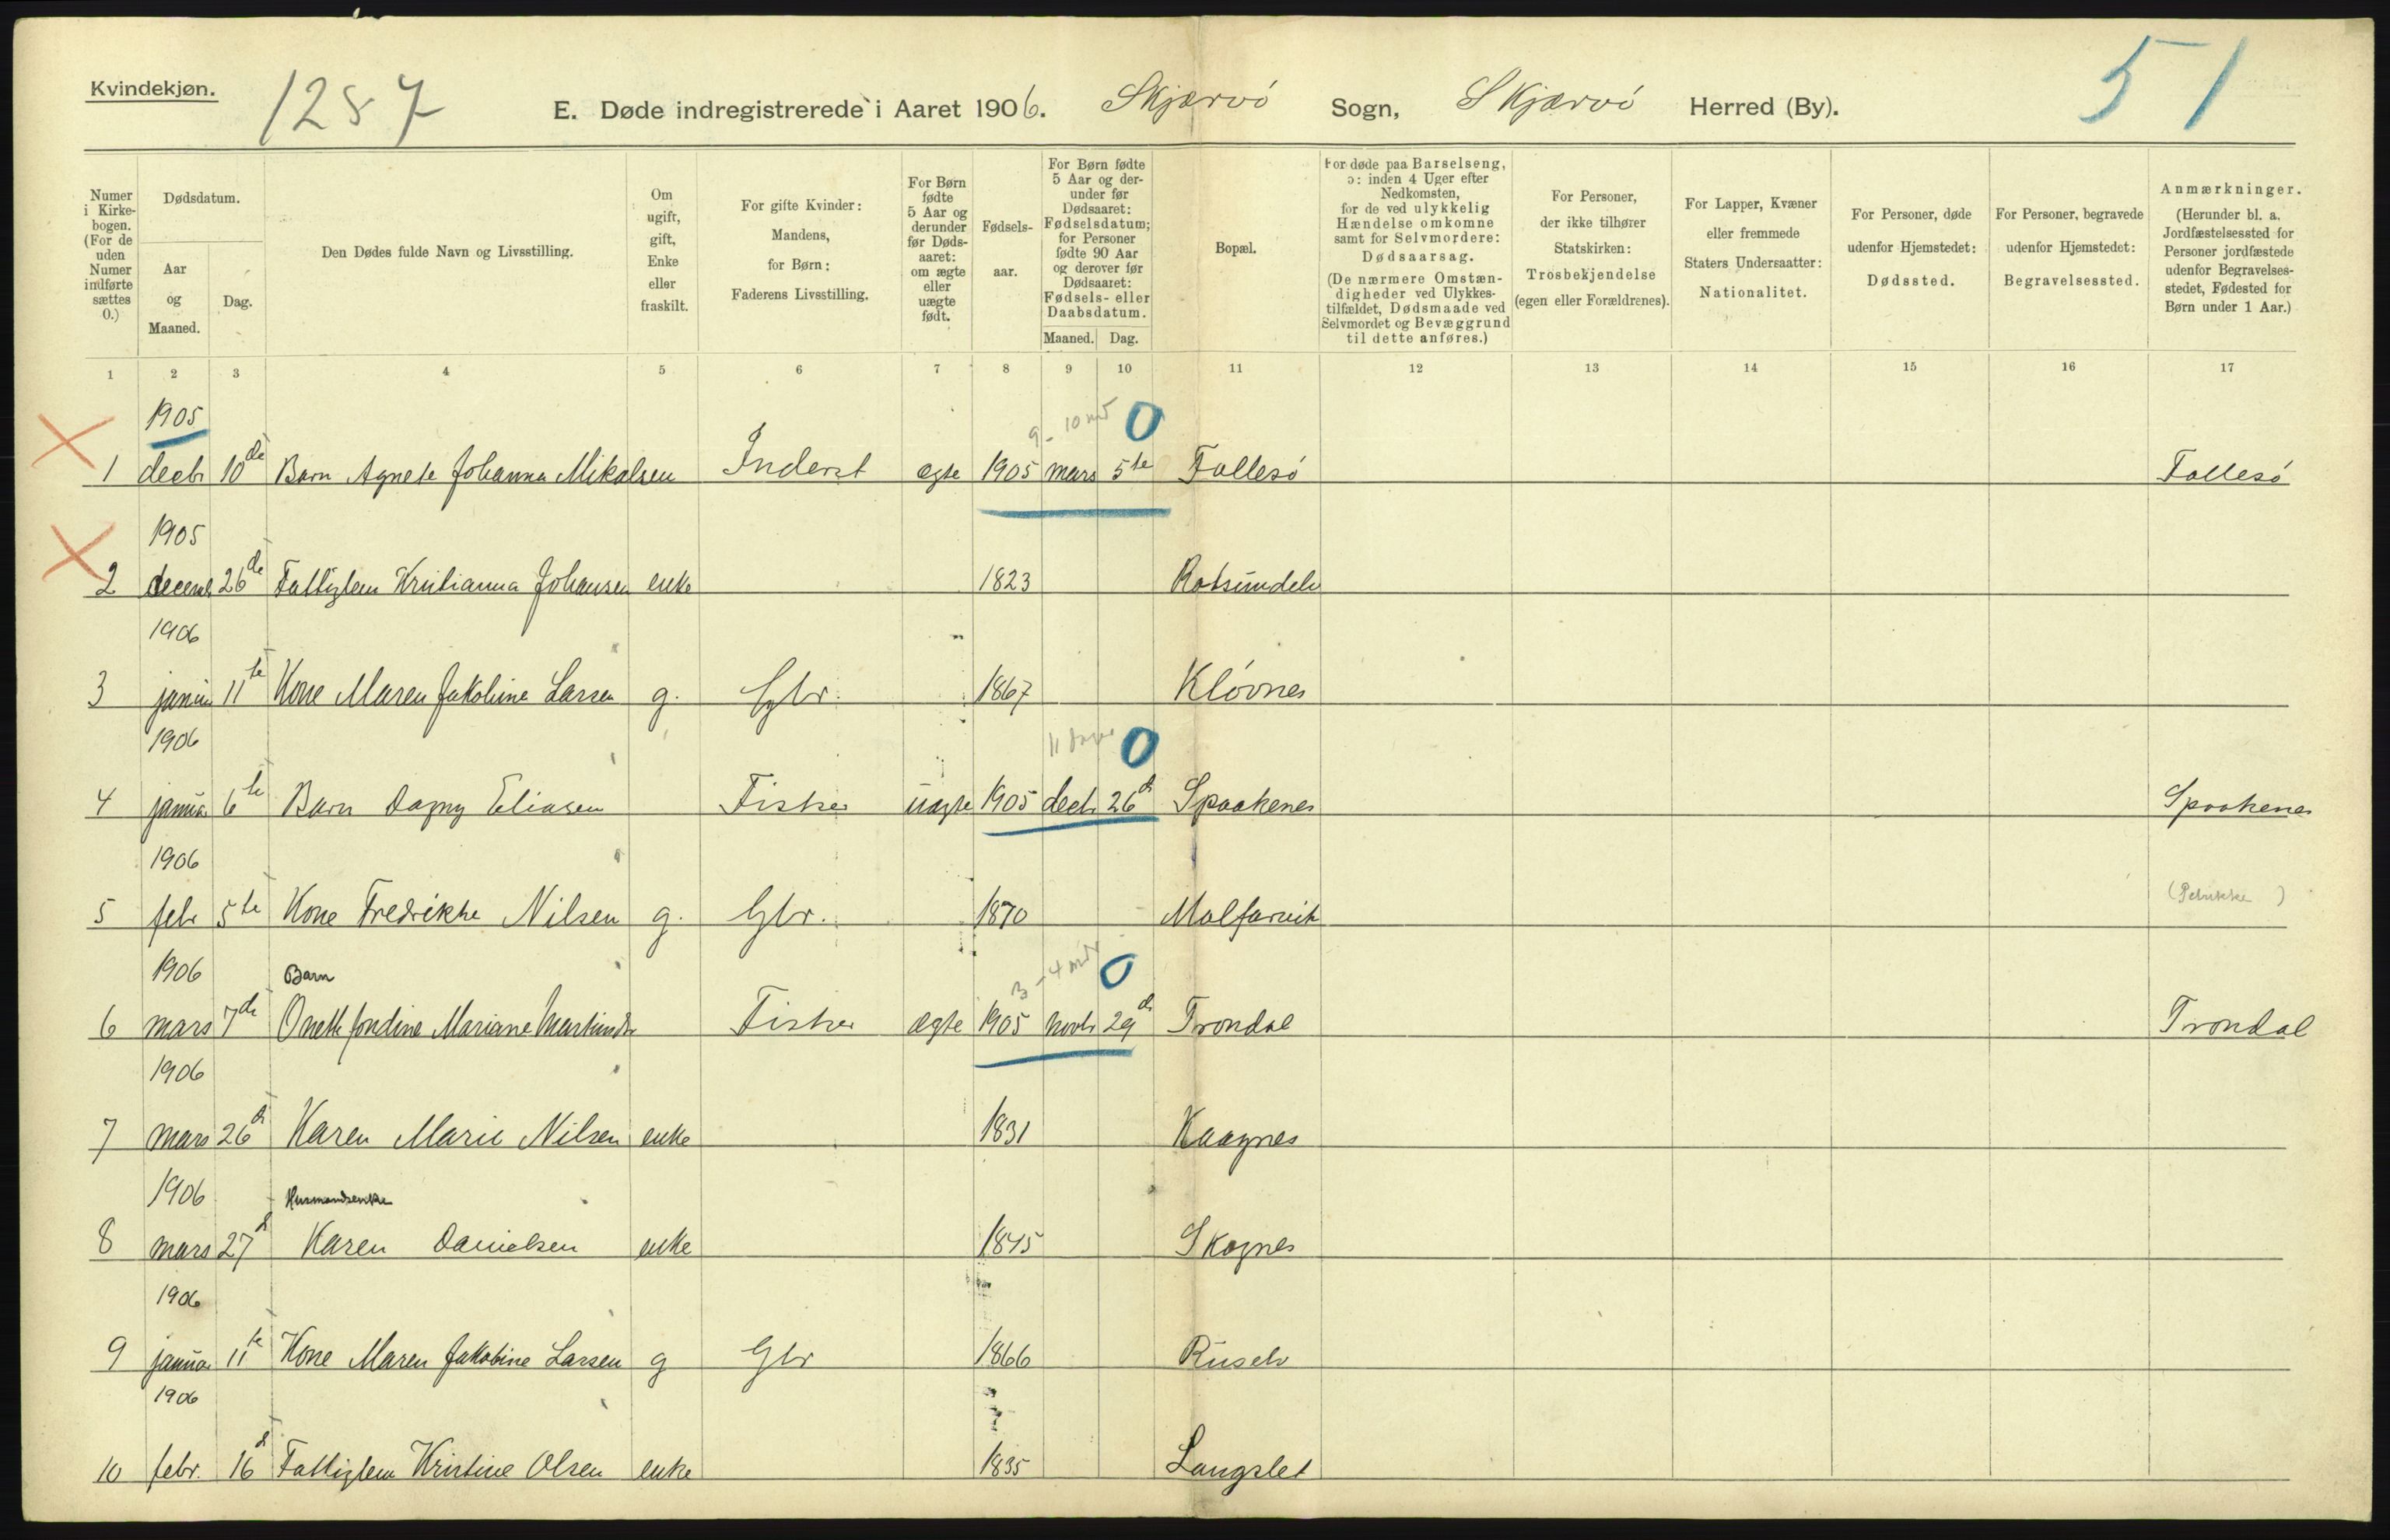 Kvindekjøn.
1287
E. Døde indregistrerede i Aaret 1906. Skjærvö Sogn, Skjærvö Herred (By).
51
Numer i Kirkebogen. (For de uden Numer indførte sættes 0.)
Dødsdatum.
Aar og Maaned.
Dag.
Den Dødes fulde Navn og Livsstilling.
Om ugift, gift, Enke eller fraskilt.
For gifte Kvinder: Mandens, for Børn: Faderens Livsstilling.
For Børn fødte 5 Aar og derunder før Dødsaaret: om ægte eller uægte født.
Fødselsaar.
For Børn fødte 5 Aar og derunder før Dødsaaret: Fødselsdatum; for Personer fødte 90 Aar og derover før Dødsaaret: Fødsels- eller Daabsdatum.
Maaned. Dag.
Bopæl.
For døde paa Barselseng, ɔ: inden 4 Uger efter Nedkomsten, for de ved ulykkelig Hændelse omkomne samt for Selvmordere: Dødsaarsag. (De nærmere Omstændigheder ved Ulykkestilfældet, Dødsmaade ved Selvmordet og Bevæggrund til dette anføres.)
For Personer, der ikke tilhører Statskirken: Trosbekjendelse (egen eller Forældrenes).
For Lapper, Kvæner eller fremmede Staters Undersaatter: Nationalitet.
For Personer, døde udenfor Hjemstedet: Dødssted.
For Personer, begravede udenfor Hjemstedet: Begravelsessted.
Anmærkninger. (Herunder bl. a. Jordfæstelsessted for Personer jordfæstede udenfor Begravelsesstedet, Fødested for Børn under 1 Aar.)
1 2 3 4 5 6 7 8 9 10 11 12 13 14 15 16 17
1905 9-10 md 0
1 decbr 10de Barn Agnete Johanna Mikalsen Inderst ægte 1905 mars 5te Follesö Follesö
1905
2 decemb 26de Fattiglem Kristianna Johansen enke 1823 Rotsundelv
1906
3 janua 11te Kone Maren Jakobine Larsen g. Gbr. 1867 Klövnes
1906 11 dage 0
4 janua 6te Barn Dagny Eliasen Fisker uægte 1905 decb 26d Spaakenes Spaakenes
1906
5 febr 5te Kone Fredrikke Nilsen g. Gbr. 1870 Molfarvik (Petrikke)
1906 Barn 3-4 mdr 0
6 mars 7de Mariane Fisker ægte 1905 novbr 29d Trondal Trondal
1906
7 mars 26d Karen Marie Nilsen enke 1831 Kaagnes
1906 Husmandsenke
8 mars 27d Karen Danielsen enke 1845 Skognes
1906
9 janua 11te Kone Maren Jakobine Larsen g Gbr 1866 Ruselv
1906
10 febr. 16d Fattiglem Kristine Olsen enke 1835 Langslet